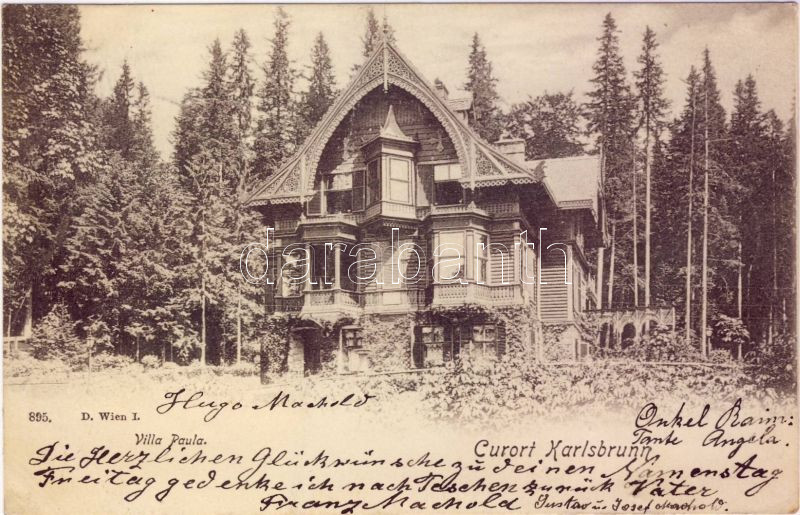 darabanth
895. D. Wien I.
Hugo Machold
Villa Paula.
Curort Karlsbrunn
Onkel Raim:
Tante Angela.
Die Herzlichen Glückwünsche zu deinen Namenstag
Freitag gedenke ich nach Teschen zurück Vater
Franz Machold Gustav u. Josef Machold.